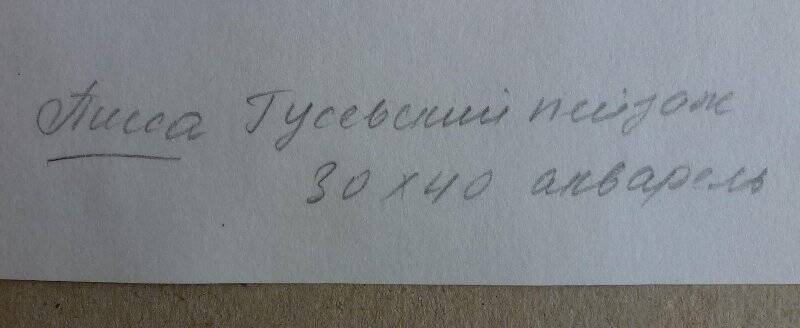 Писса Гусевский пейзаж
30 х 40 акварель